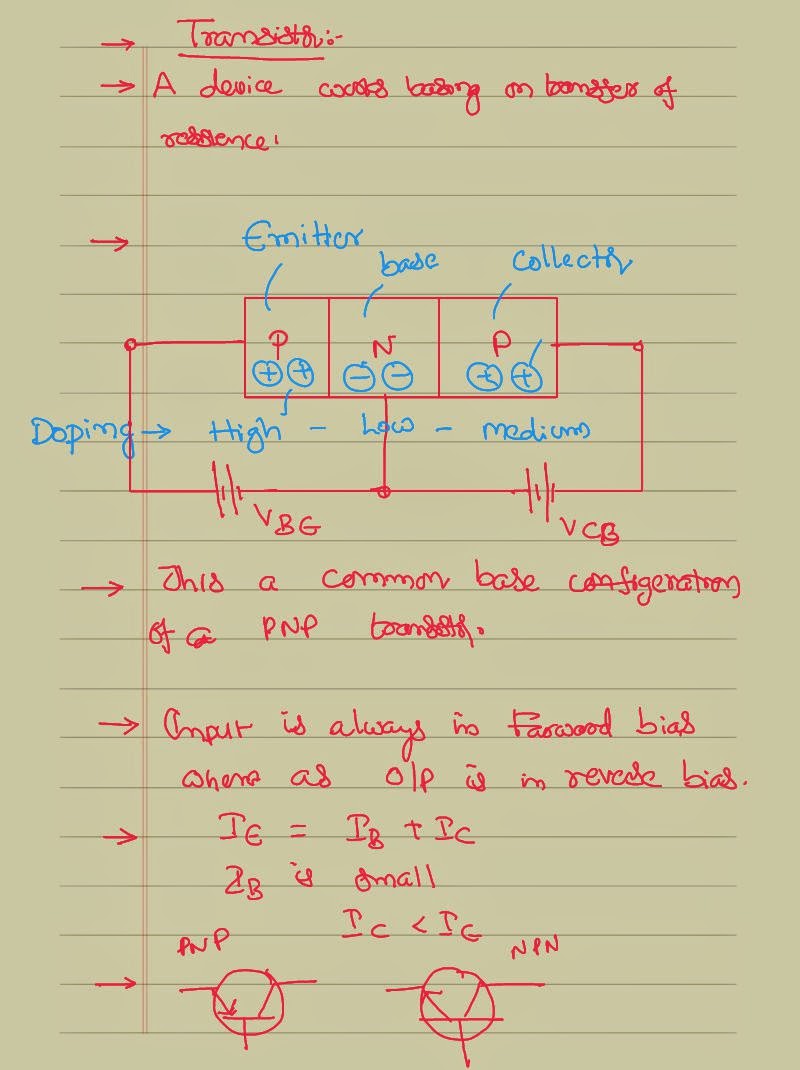 → Transistor:-
→ A device works basing on transfer of
resistence.
→ Emitter base collector
P N P
⊕ ⊕ ⊖ ⊖ ⊕ ⊕
Doping → High - Low - medium
VBE VCB
→ This a common base configeration
of a PNP transistor.
→ Input is always in Forward bias
where as O/P is in reverse bias.
→ IE = IB + IC
IB is small
IC < IE
PNP NPN
→